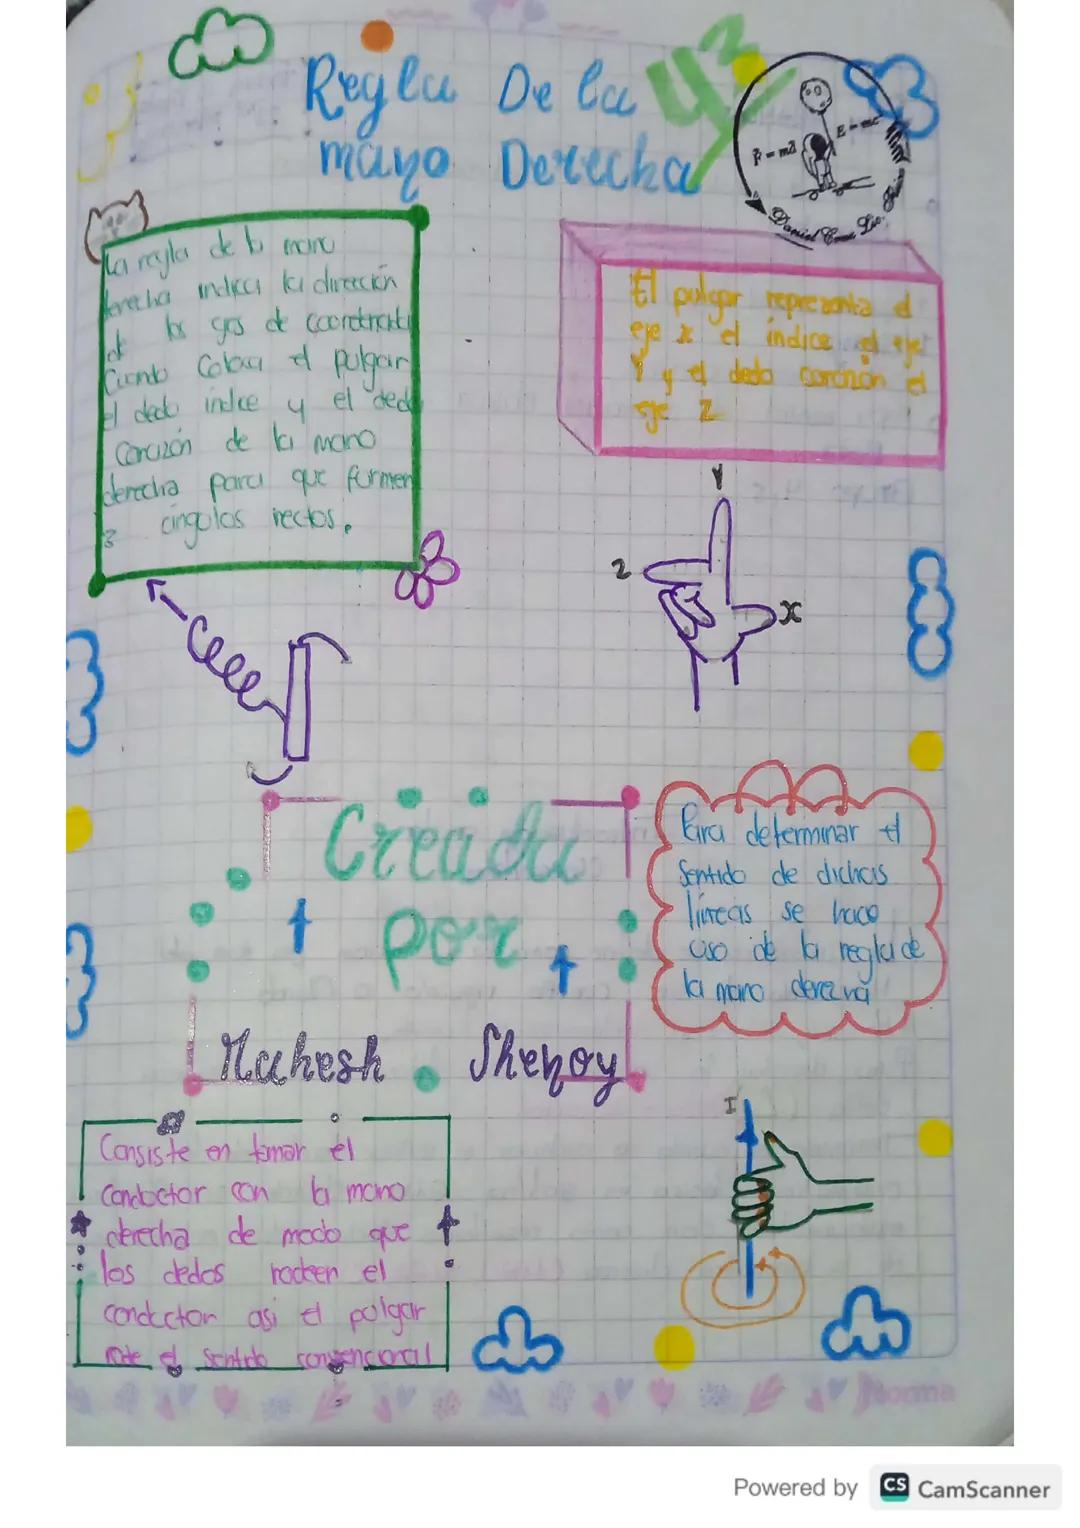 Regla De la
mano Derecha
43
F=ma
E=mc
Daniel
La regla de la mano
derecha indica la dirección
de los ejes de coordenada
Cuando Coloca el pulgar
el dedo indice y el dedo
Corazón de la mano
derecha para que formen
3 angulos rectos.
El pulgar representa el
eje x el indice el eje
Y y el dedo corazón el
eje Z
Y
Z
x
Creada
por
Mahesh Shenoy
Para determinar el
Sentido de dichas
líneas se hace
uso de la regla de
la mano derecha
Consiste en tomar el
Conductor con la mano
derecha de modo que
los dedos rodeen el
conductor asi el pulgar
el sentido convencional
I
norma
Powered by CS CamScanner